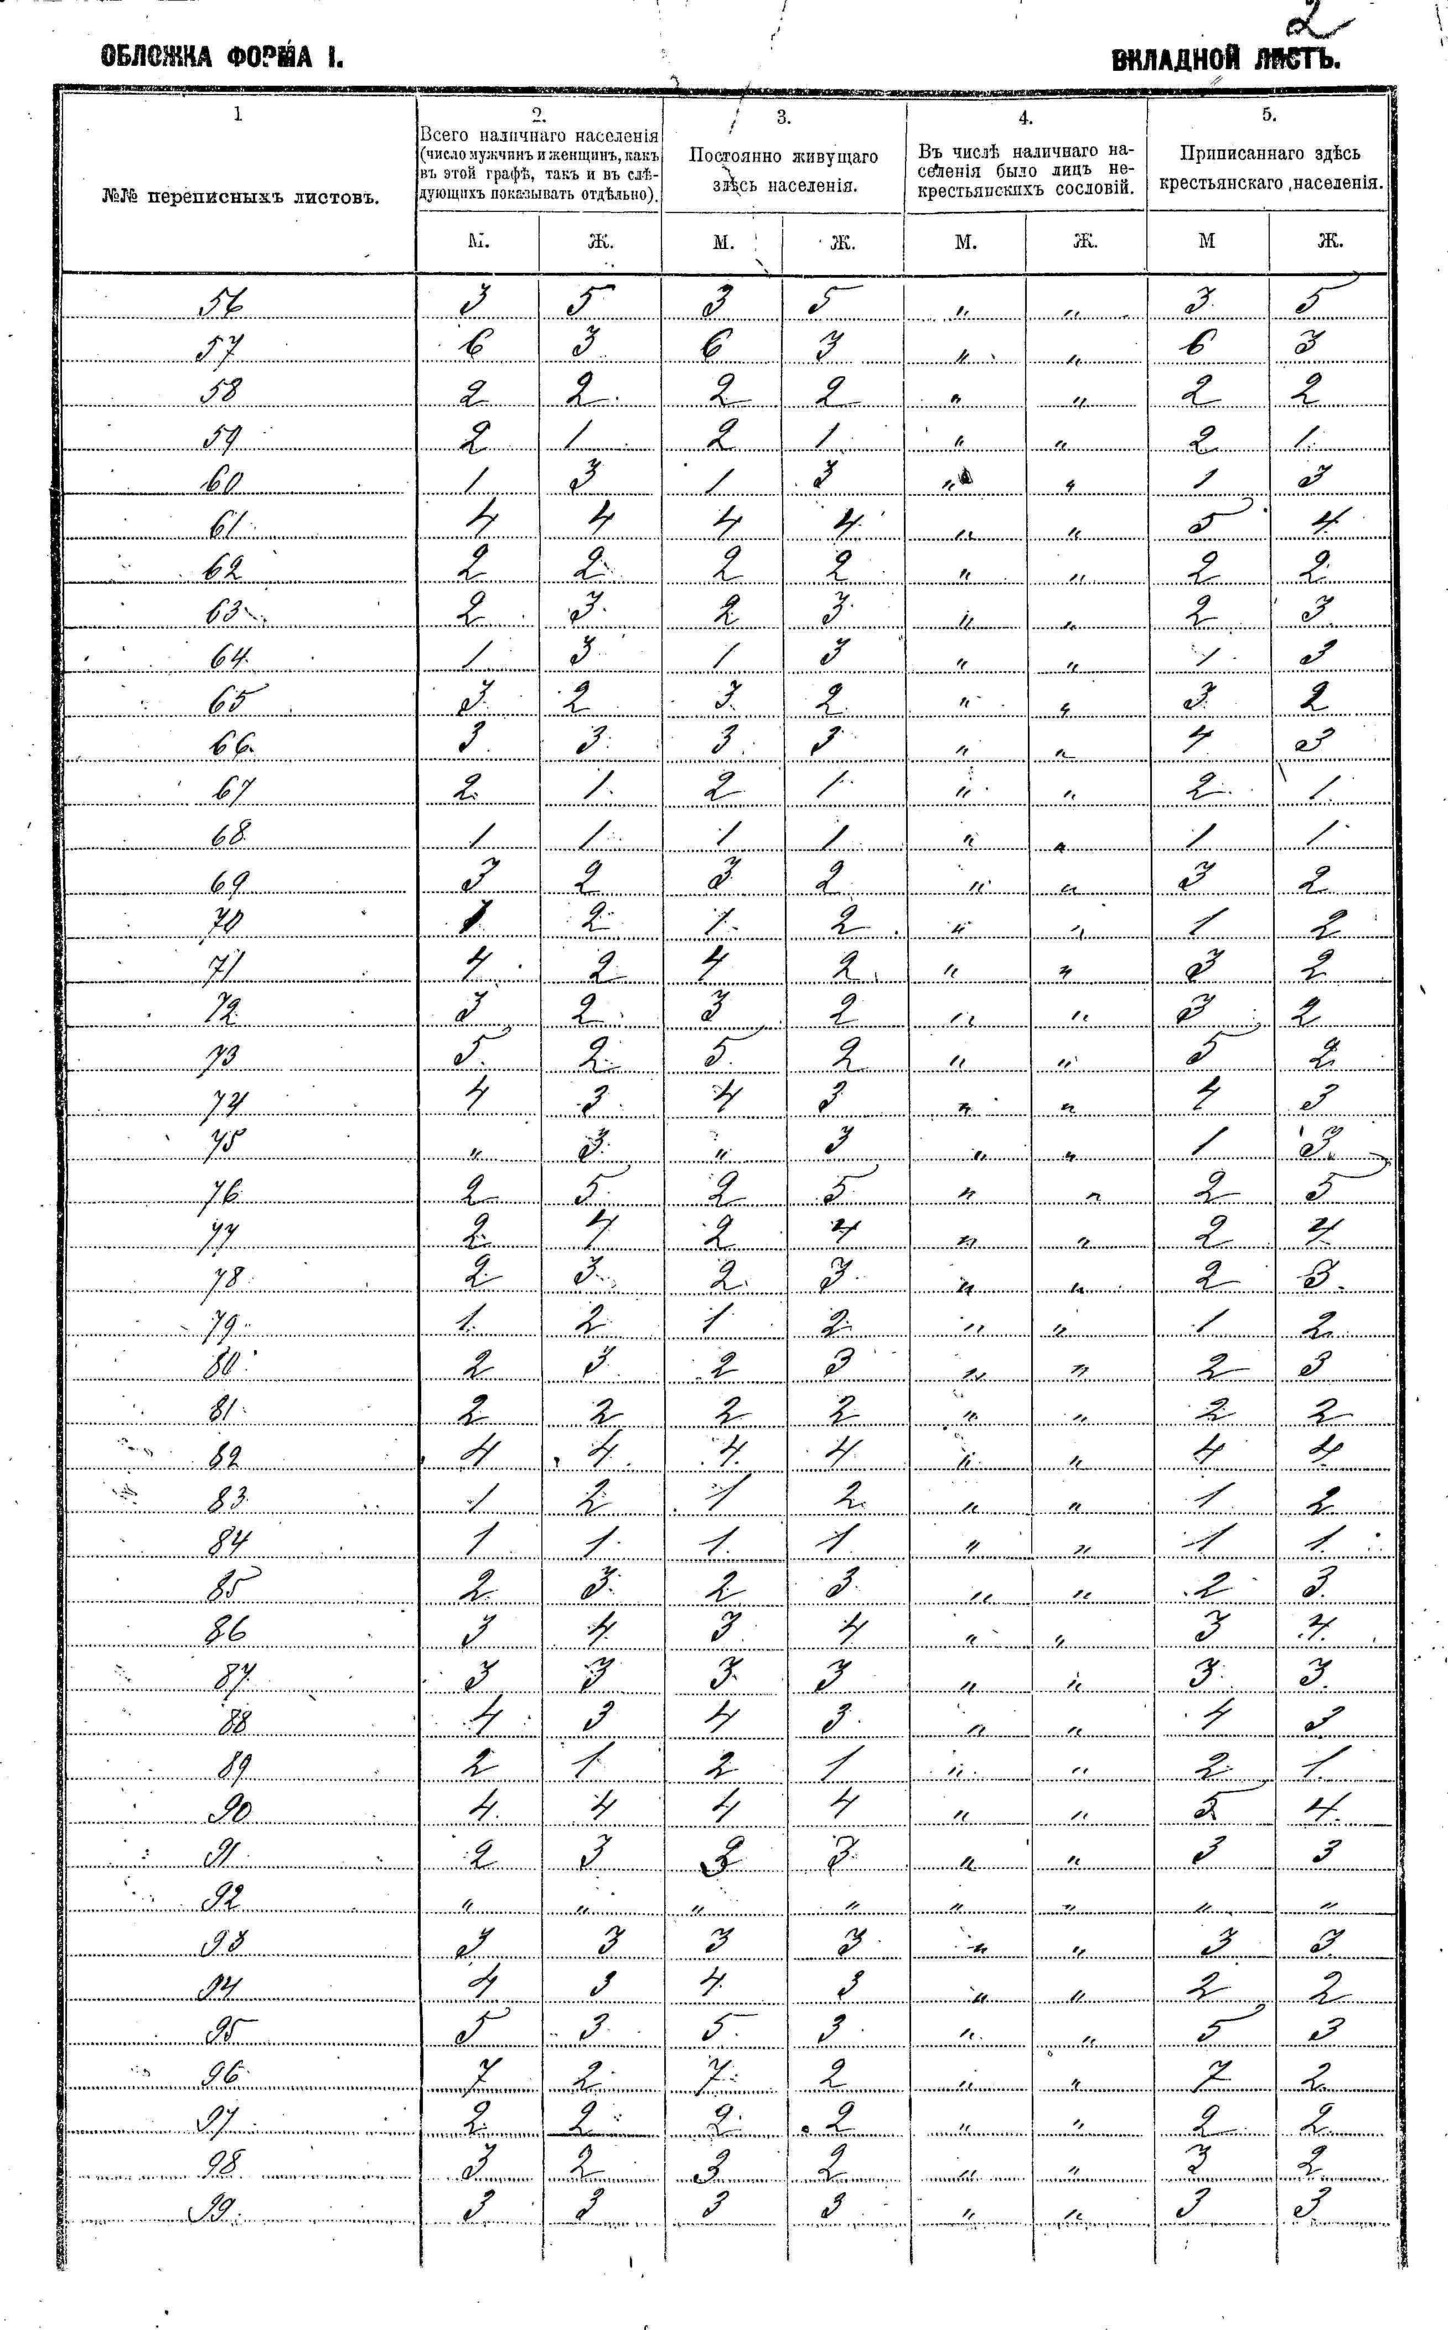 2
ОБЛОЖКА ФОРМА I. ВКЛАДНОЙ ЛИСТЪ.
1 2. 3. 4. 5.
№№ переписныхъ листовъ.
Всего наличнаго населенія
(число мужчинъ и женщинъ, какъ
въ этой графѣ, такъ и въ слѣ-
дующихъ показывать отдѣльно).
Постоянно живущаго
здѣсь населенія.
Въ числѣ наличнаго на-
селенія было лицъ не-
крестьянскихъ сословій.
Приписаннаго здѣсь
крестьянскаго населенія.
М. Ж. М. Ж. М. Ж. М Ж.
56 3 5 3 5 „ „ 3 5
57 6 3 6 3 „ „ 6 3
58 2 2 2 2 „ „ 2 2
59 2 1 2 1 „ „ 2 1
60 1 3 1 3 „ „ 1 3
61 4 4 4 4 „ „ 5 4
62 2 2 2 2 „ „ 2 2
63 2 3 2 3 „ „ 2 3
64 1 3 1 3 „ „ 1 3
65 3 2 3 2 „ „ 3 2
66 3 3 3 3 „ „ 4 3
67 2 1 2 1 „ „ 2 1
68 1 1 1 1 „ „ 1 1
69 3 2 3 2 „ „ 3 2
70 1 2 1 2 „ „ 1 2
71 4 2 4 2 „ „ 3 2
72 3 2 3 2 „ „ 3 2
73 5 2 5 2 „ „ 5 2
74 4 3 4 3 „ „ 4 3
75 „ 3 „ 3 „ „ 1 3
76 2 5 2 5 „ „ 2 5
77 2 4 2 4 „ „ 2 4
78 2 3 2 3 „ „ 2 3
79 1 2 1 2 „ „ 1 2
80 2 3 2 3 „ „ 2 3
81 2 2 2 2 „ „ 2 2
82 4 4 4 4 „ „ 4 4
83 1 2 1 2 „ „ 1 2
84 1 1 1 1 „ „ 1 1
85 2 3 2 3 „ „ 2 3
86 3 4 3 4 „ „ 3 4
87 3 3 3 3 „ „ 3 3
88 4 3 4 3 „ „ 4 3
89 2 1 2 1 „ „ 2 1
90 4 4 4 4 „ „ 5 4
91 2 3 3 „ „ 3 3
92 „ „ „ „ „ „ „ „
93 3 3 3 3 „ „ 3 3
94 4 3 4 3 „ „ 2 2
95 5 3 5 3 „ „ 5 3
96 7 2 7 2 „ „ 7 2
97 2 2 2 2 „ „ 2 2
98 3 2 3 2 „ „ 3 2
99 3 3 3 3 „ „ 3 3